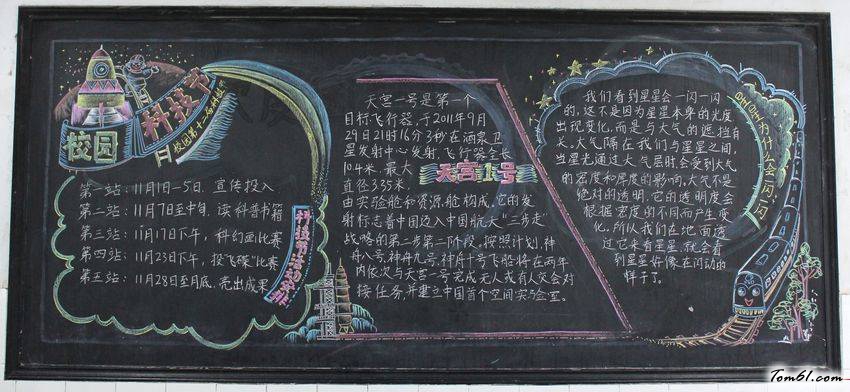 校园
科技节
校园第十二届科技节
第一站：11月1日—5日，宣传投入
第二站：11月7日至中旬，读科普书籍
第三站：11月17日下午，科幻画比赛
第四站：11月23日下午，投飞碟"比赛
第五站：11月28日至月底，亮出成果
科技节活动安排
天宫一号是第一个
目标飞行器，于2011年9月
29日21时16分3秒在酒泉卫
星发射中心发射，飞行器全长
10.4米，最大
直径3.35米，
天宫1号
由实验舱和资源舱构成，它的发
射标志着中国迈入中国航天"三步走"
战略的第二步第二阶段，按照计划，神
舟八号、神舟九号、神舟十号飞船将在两年
内依次与天宫一号完成无人或有人交会对
接任务，并建立中国首个空间实验室。
我们看到星星会一闪一闪
的，这不是因为星星本身的光度
出现变化，而是与大气的遮挡有
关。大气隔在我们与星星之间，
当星光通过大气层时会受到大气
的密度和厚度的影响。大气不是
绝对的透明，它的透明度会
根据密度的不同而产生变
化。所以我们在地面透
过它来看星星，就会看
到星星好像在闪动的
样子了。
星星为什么会一闪一闪
Tom61.com